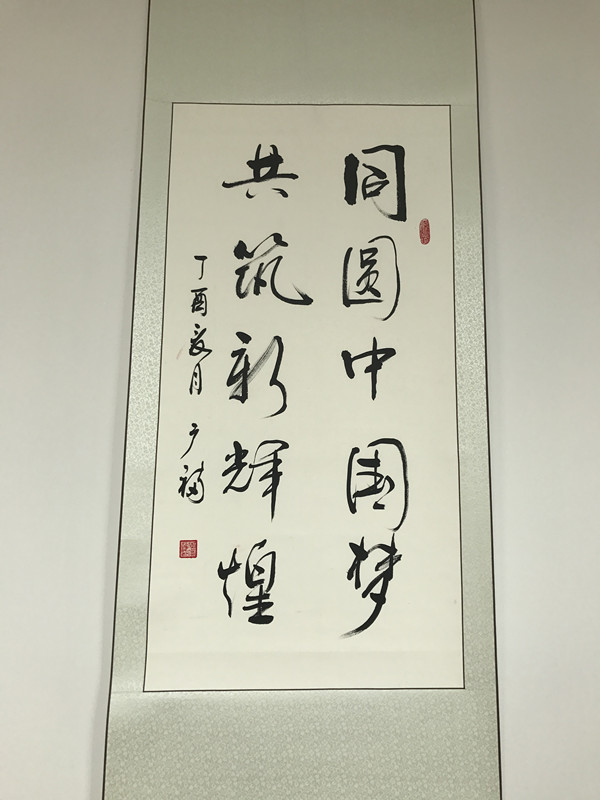 同圆中国梦
共筑新辉煌
丁酉辰月 广福